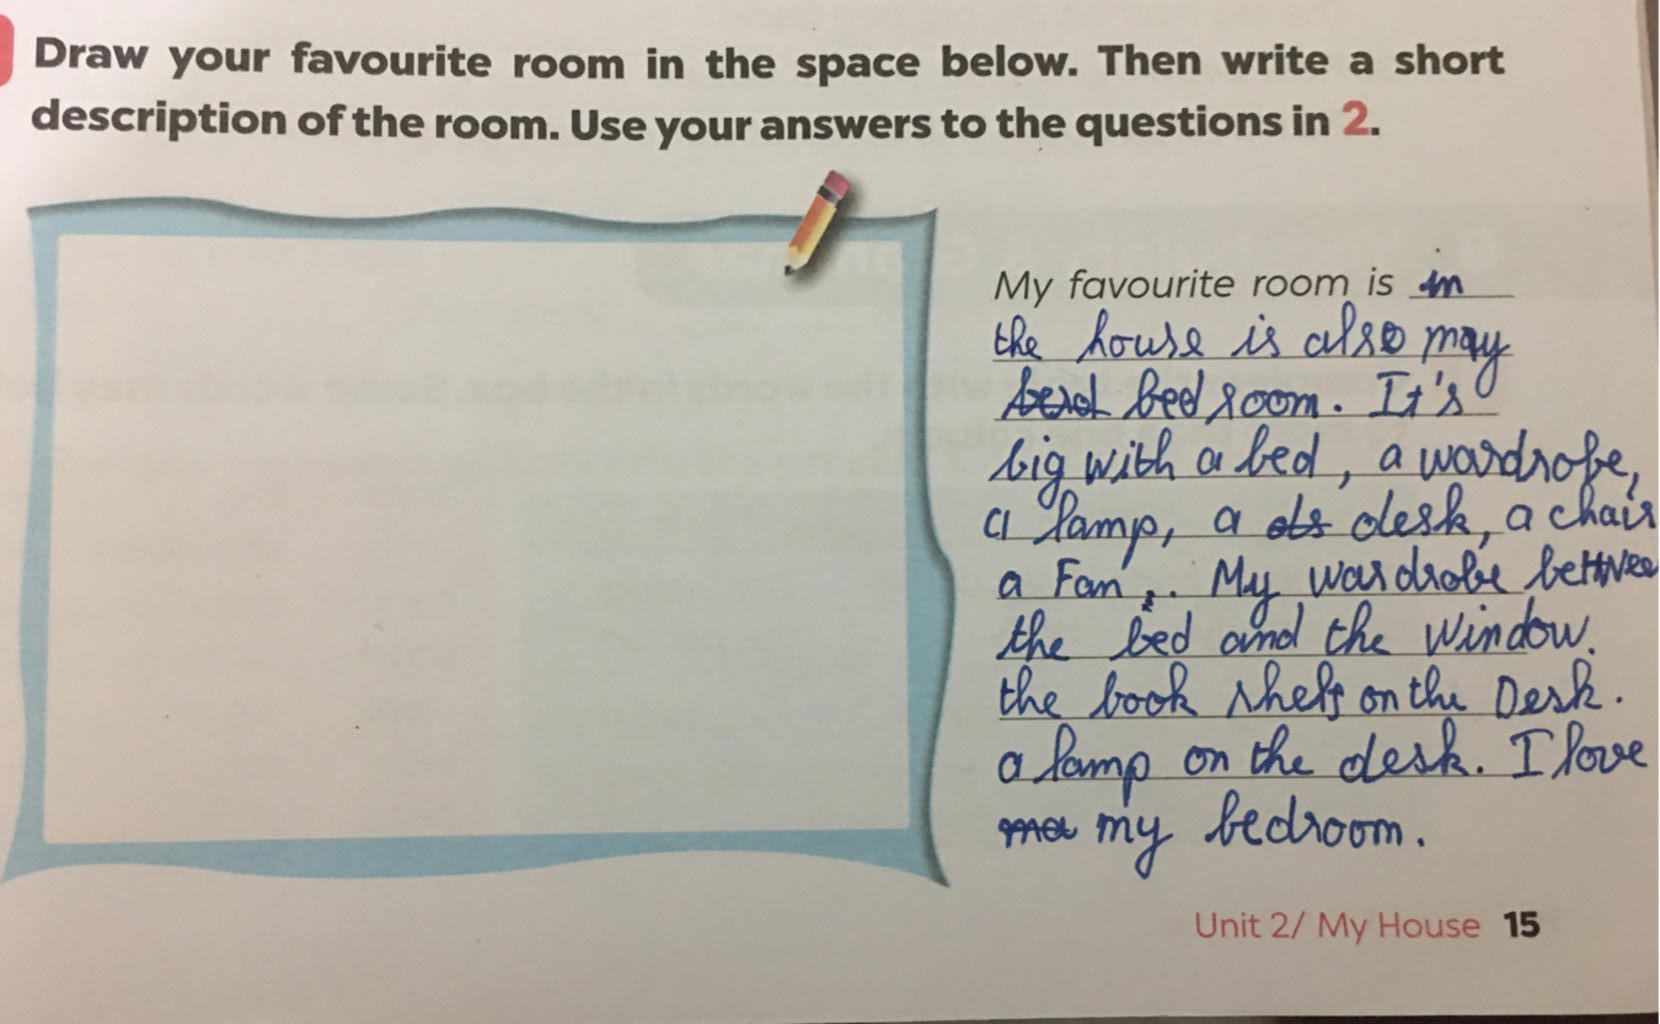 Draw your favourite room in the space below. Then write a short
description of the room. Use your answers to the questions in 2.
My favourite room is in
the house is also may
bed room. It's
big with a bed, a wardrobe,
a lamp, a desk, a chair
a Fan,. My wardrobe betwee
the bed and the window.
the book shelf on the Desk.
a lamp on the desk. I love
my bedroom.
Unit 2/ My House 15